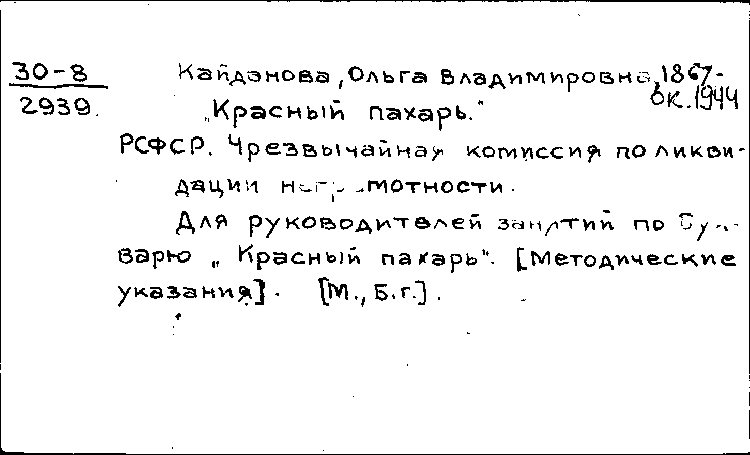 30-8
2939.
Кайданова, Ольга Владимировна, 1867-
ок. 1944
„Красный пахарь."
РСФСР. Чрезвычайная комиссия по ликви-
дации неграмотности.
Для руководителей занятий по бук-
варю „Красный пахарь". [Методические
указания]. [М., Б.г.].